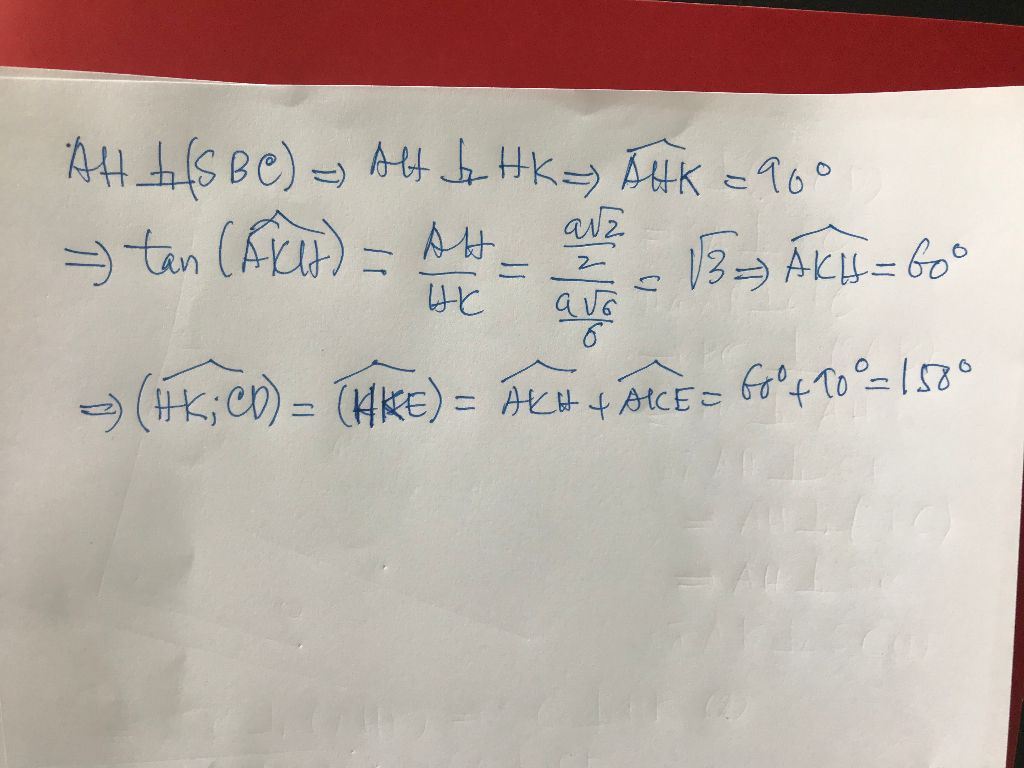 AH ⊥ (SBC) ⇒ AH ⊥ HK ⇒ \widehat{AHK} = 90°
⇒ tan (\widehat{AKH}) = \frac{AH}{HK} = \frac{\frac{a√2}{2}}{\frac{a√6}{6}} = √3 ⇒ \widehat{AKH} = 60°
⇒ (\widehat{HK; CD}) = (\widehat{HKE}) = \widehat{AKH} + \widehat{AKE} = 60° + 90° = 150°